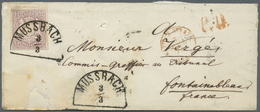 MUSSBACH
3
3
P.D.
A
Monsieur Vergé
Commis-Greffier au Tribunal
fontainebleau
france
MUSSBACH
3
3